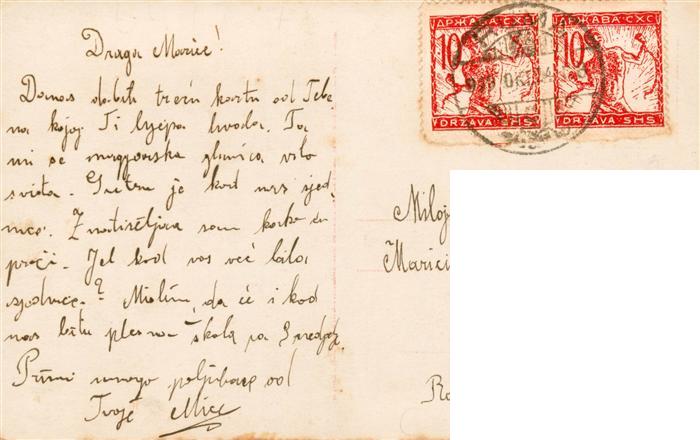 Draga Marice!
Danas dobih treću kartu od Tebe
na kojoj Ti lijepa hvala. Ta
mi se glavica vrlo
sviđa. Sutra je kod nas sjed-
nica. Znatiželjna sam kako će
proći. Jel kod vas već bila
sjednica? Mislim, da će i kod
nas biti plesna škola
Primi mnogo poljubaca od
Tvoje Mice
ДРЖАВА СХС
10
DRŽAVA SHS
ДРЖАВА СХС
10
DRŽAVA SHS
Miloj
Marici